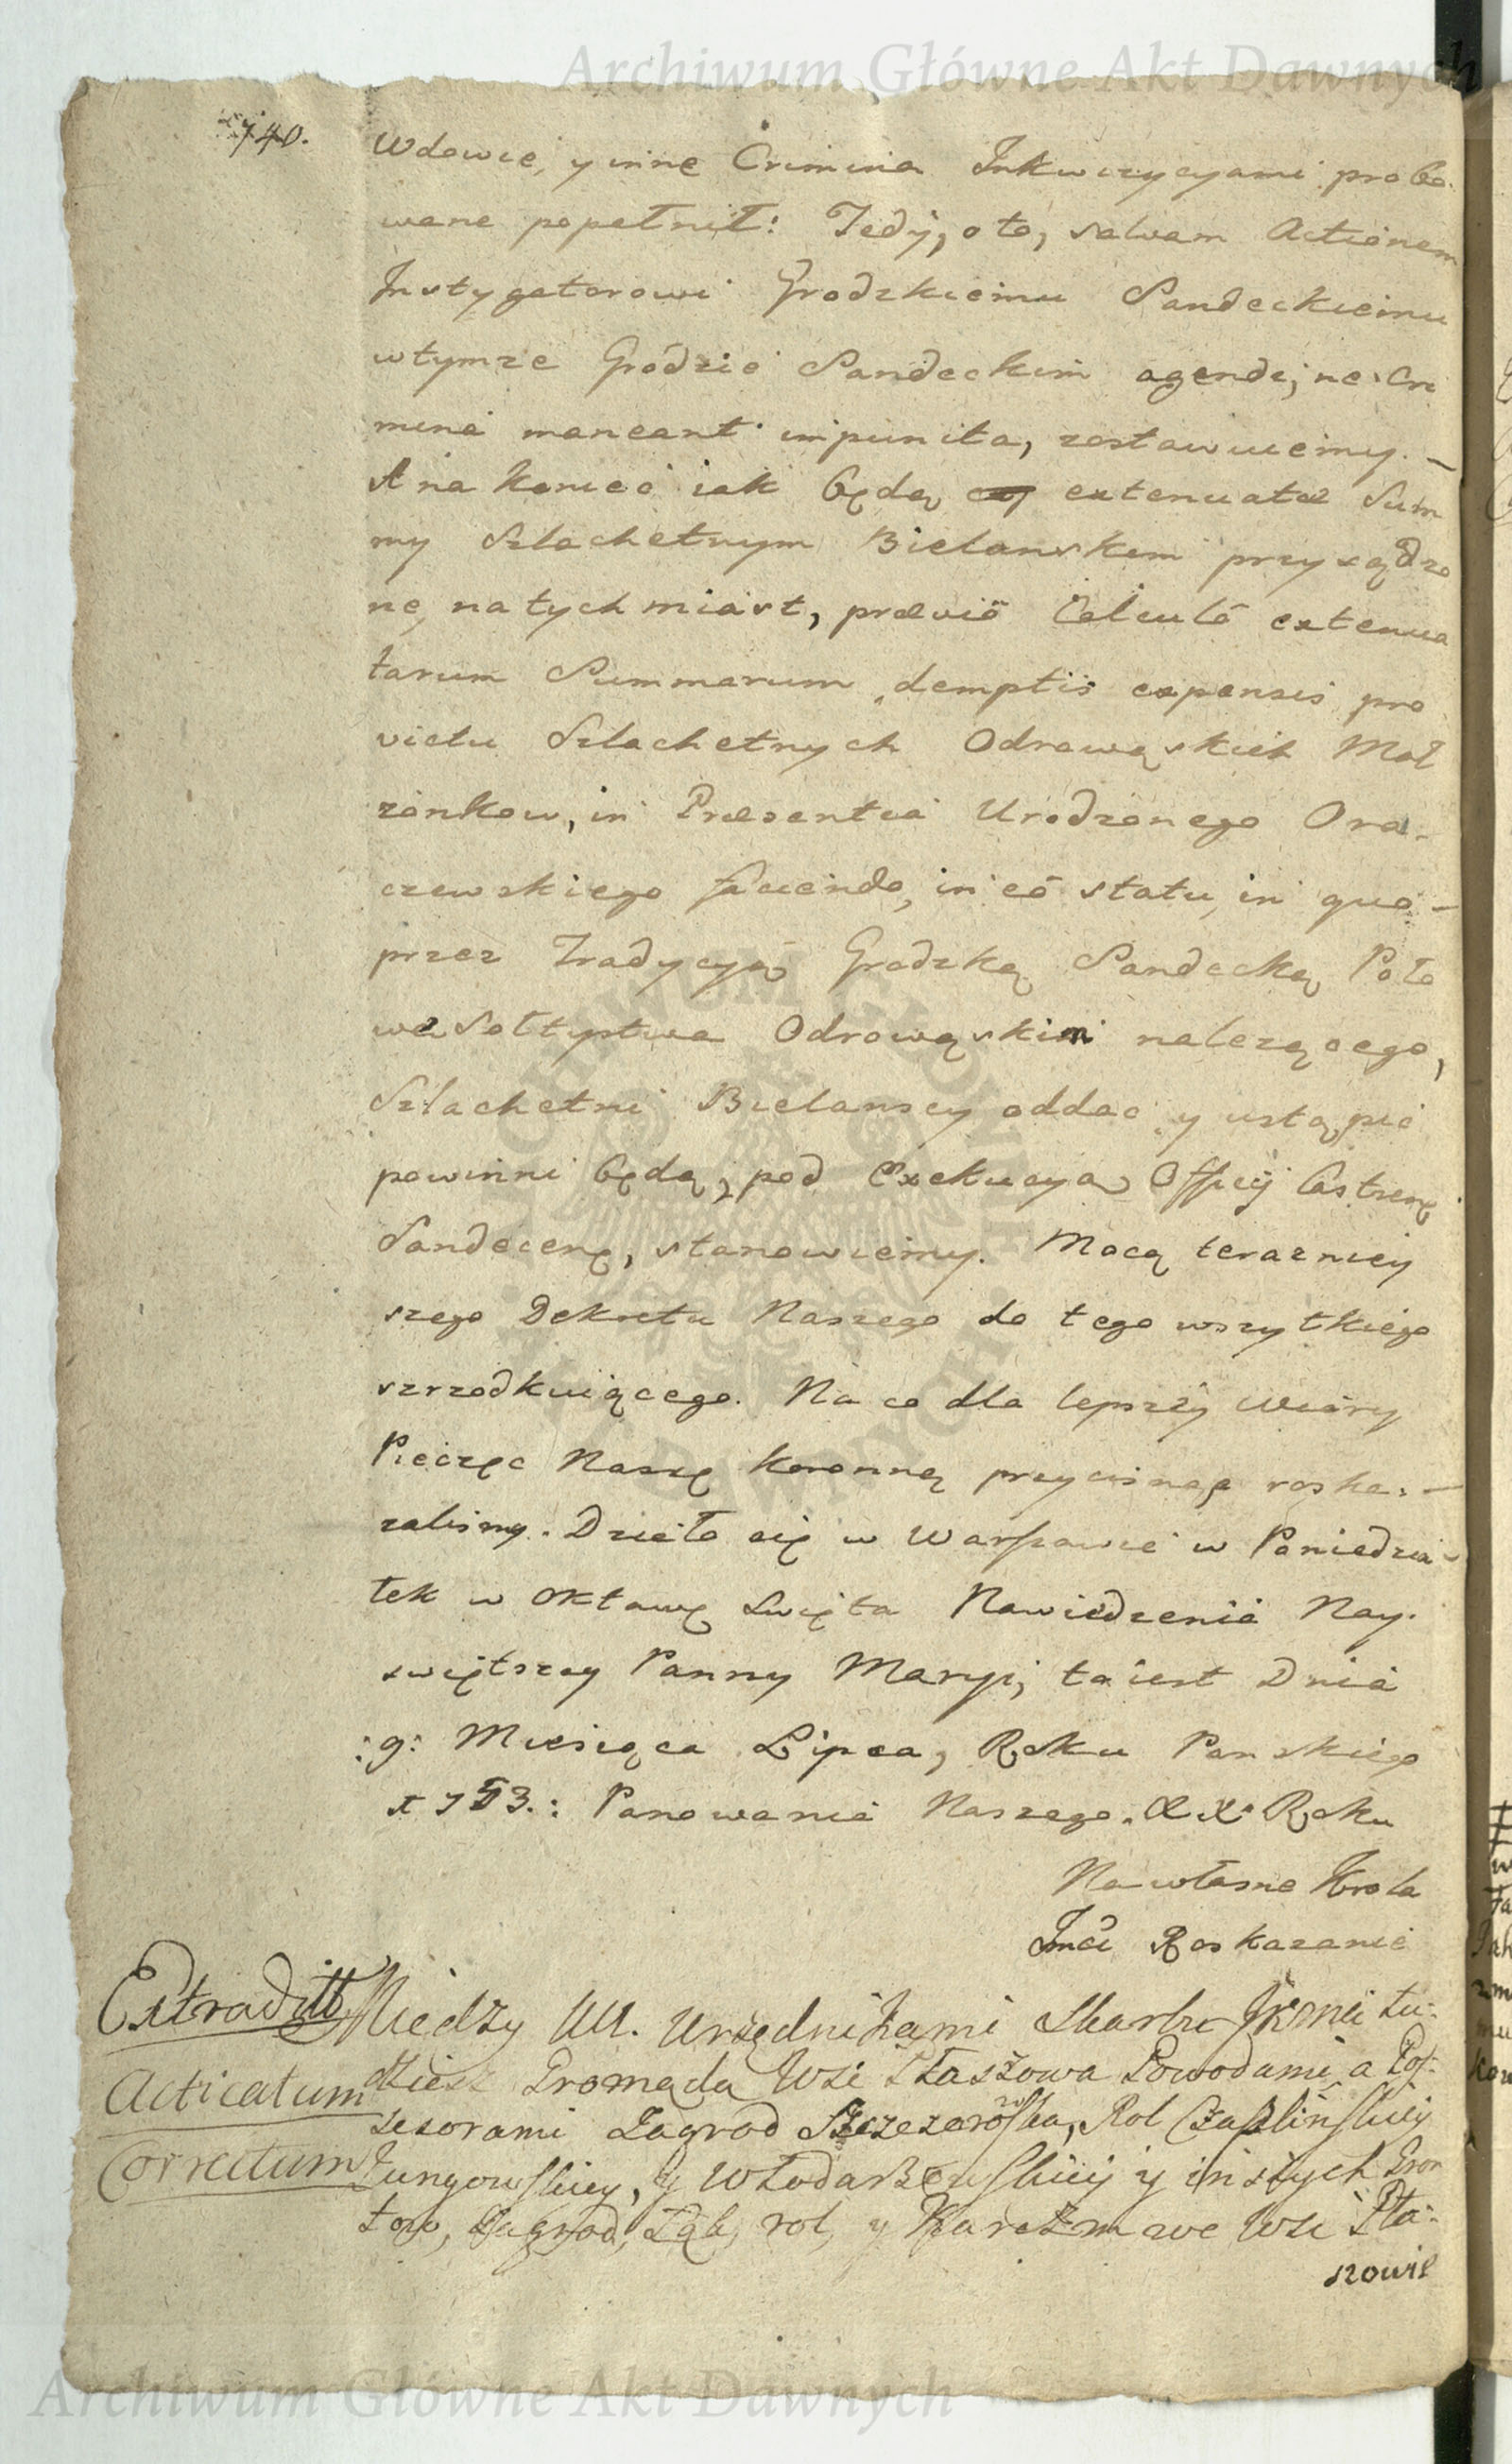 Archiwum Główne Akt Dawnych
740.
Wdowie, y inne Crimina Inkwizycyami probo
wane popełnił: Tedy, o to, salvam Actionem
Instygatorowi Grodzkiemu Sandeckiemu
w tymze Grodzie Sandeckim agendi, ne Cri
mina maneant impunita, zostawuiemy. –
A na koniec iak będą extenuatæ Sum
my Szlachetnym Bielanskim przysądzo
ne, natychmiast, prævio Calculo extenua
tarum Summarum, demptis expensis pro
victu Szlachetnych Odrowąskich Mał
zonkow, in Præsentia Urodzonego Ora-
czewskiego faciendo, in eo statu, in quo –
przez Tradycyą Grodzką Sandecką Poło
wa Sołtystwa Odrowąskim nalezącego,
Szlachetni Bielanscy oddac y ustąpic
powinni będą, pod Exekucyą Officij Castren.
Sandecen, stanowiemy. Mocą terazniey
szego Dekretu Naszego do tego wszytkiego
szrzodkuiącego. Na co dla lepszey wiary
Pieczęc Naszę Koronną przycisnąc roska. –
zalismy. Działo się w Warszawie w Poniedzia-
łek w oktawę Swięta Nawiedzenia Nay.
swiętszey Panny Maryi, to iest Dnia
:9: Miesiąca Lipca, Roku Panskiego
1753.: Panowania Naszego. XX. Roku
Na własne Krola
Jmci Roskazanie
Extraditt
Acticatum
Correctum
Między UU. Urzędnikami Skarbu Jkmci tu:
dziesz Gromada Wsi Płaszowa Powodami, a Pos:
sesorami Zagrod Szczezerowska, Rol Czaplinskiey
Zungowskiey, y Włodarzowskiey y inszych Gron
tow, Zagrod, Łąk, rol, y Karczm we Wsi Pła:
szowie
Archiwum Główne Akt Dawnych